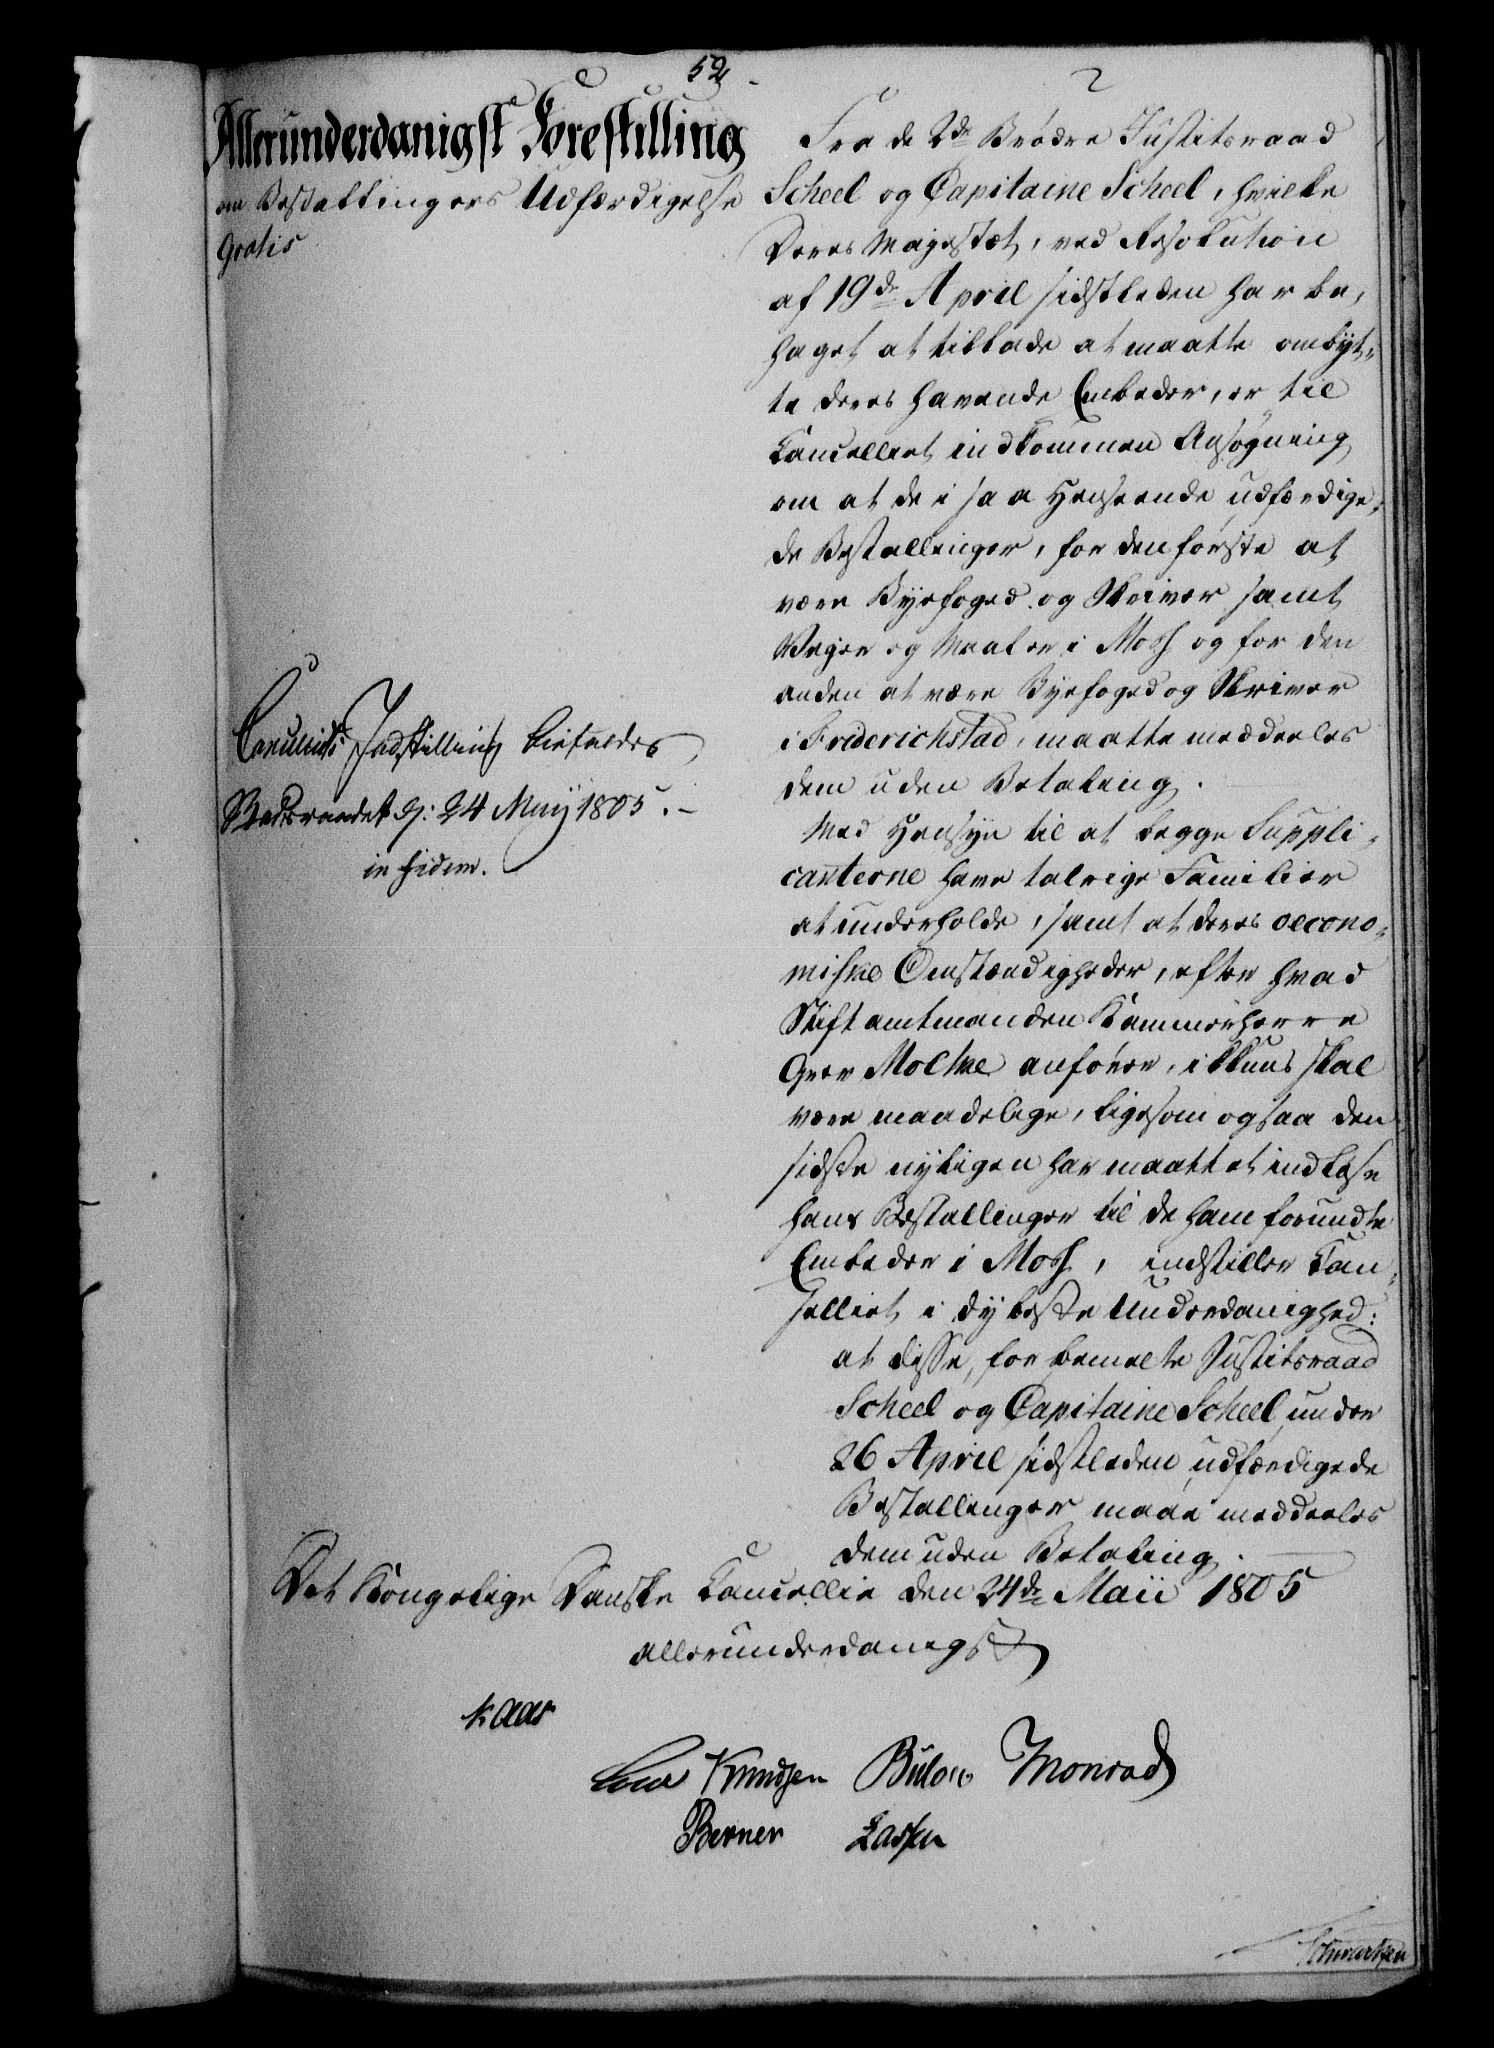 52
Allerunderdanigst Forestilling
om Bestallingers Udfærdigelse
Gratis
Fra de 2de Brødre Justitsraad
Scheel og Capitaine Scheel, hvilke
Deres Majestæt, ved Resolution
af 19de April sidstleden har be,
haget at tillade at maatte ombyt,,
te deres havende Embeder, er til
Cancelliet indkommen Ansøgning
om at de i saa Henseende udfærdige,
de Bestallinger, for den første at
være Byefoged og Skriver samt
Vejer og Maaler i Moss og for den
anden at være Byefoged og Skriver
i Friderichstad, maatte meddeeles
dem uden Betaling.
Med Hensyn til at begge Suppli,
canterne have talrige Familier
at underholde, samt at deres oecono,
miske Omstændigheder, efter hvad
Stiftamtmanden Kammerherre
Grev Moltke anfører, ikkuns skal
være maadelige, ligesom ogsaa den
sidste nyligen har maattet indløse
hans Bestallinger til de ham forundte
Embeder i Moss, indstiller Can,
celliet i dybeste Underdanighed:
at disse, for bemelte Justitsraad
Scheel og Capitaine Scheel under
26 April sidstleden udfærdigede
Bestallinger maae meddeeles
dem uden Betaling.
Cancelliets Indstilling bifaldes
Statsraadet d: 24 Maij 1805.
in fidem.
Det Kongelige Danske Cancellie den 24de Maii 1805
allerunderdanigst
Kaas
Knudsen Bülow Monrad
Berner Lassen